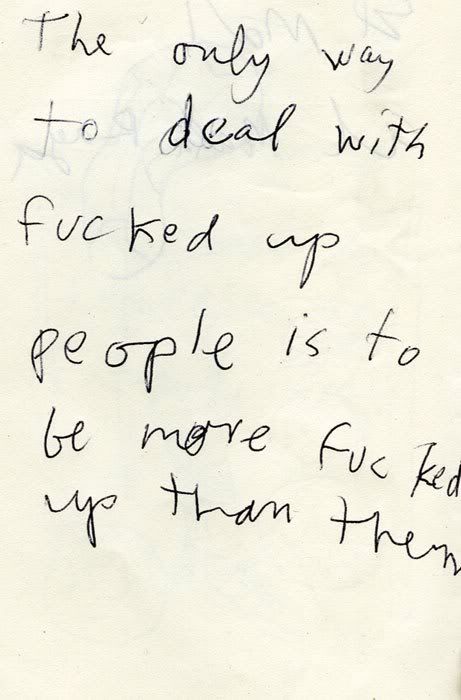 The only way
to deal with
fucked up
people is to
be more fucked
up than them